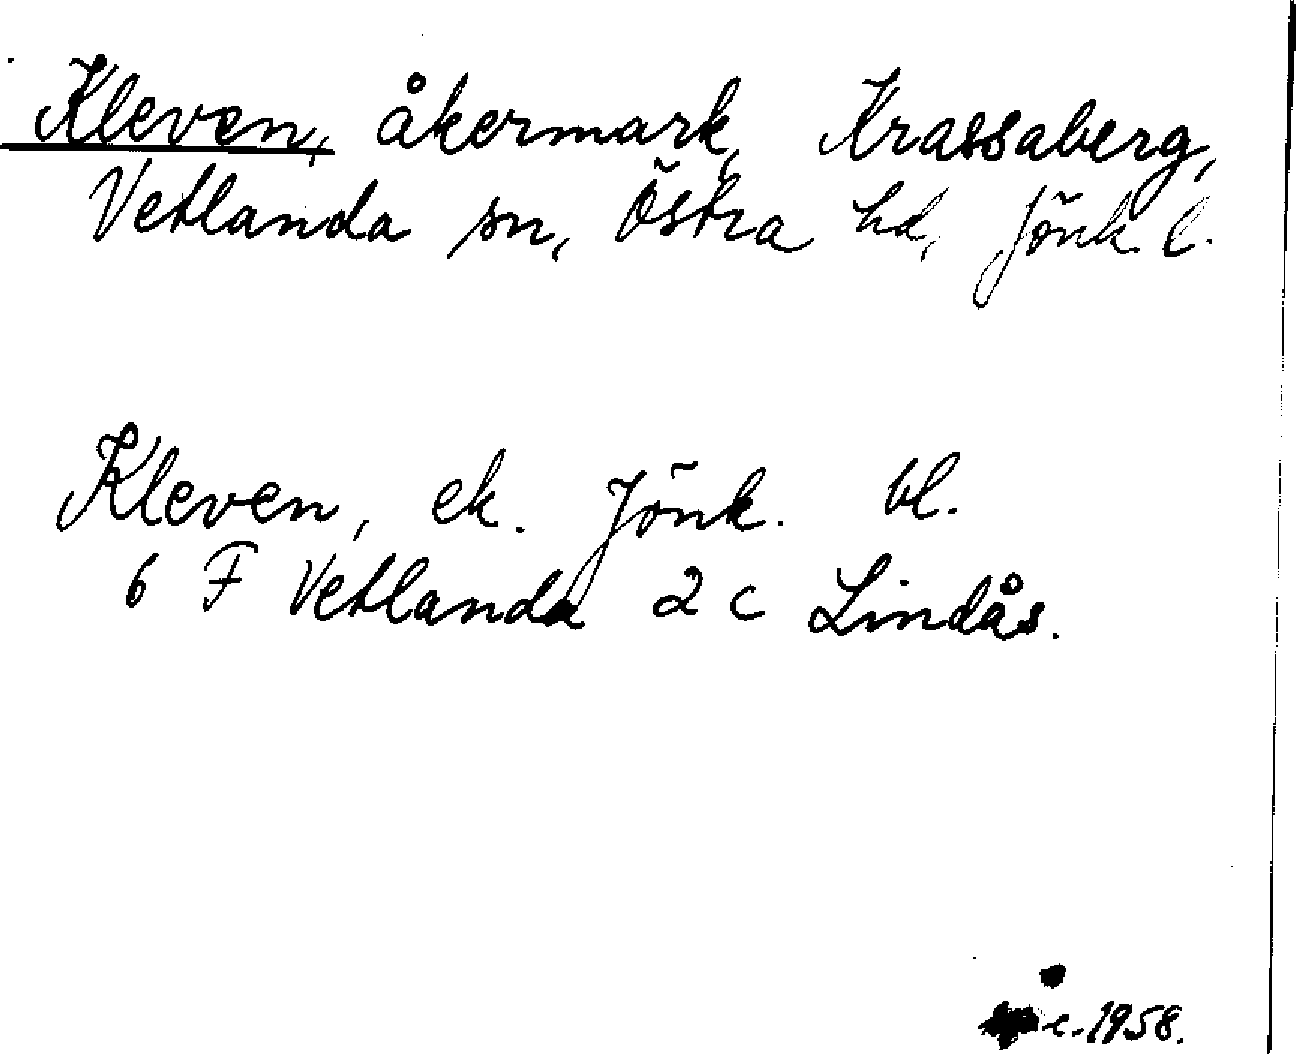 Kleven, åkermark, Krassaberg,
Vetlanda sn, Östra hd, Jönk. l.
Kleven, ek. Jönk. bl.
6 F Vetlanda 2 c Lindås.
1958.